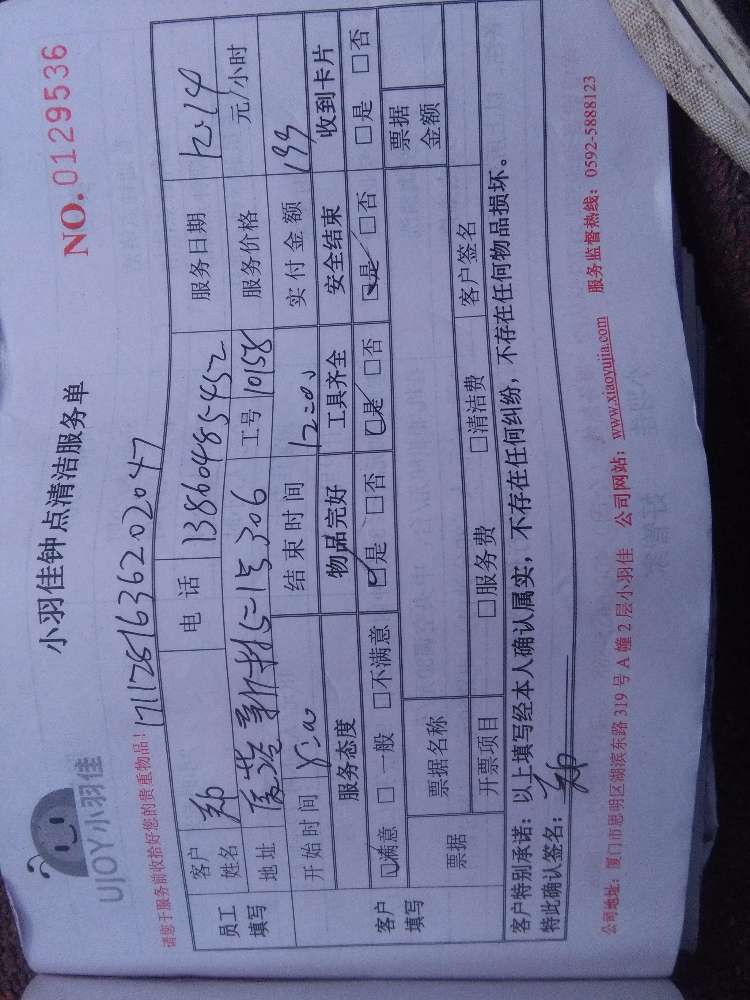 UJOY小羽佳
小羽佳钟点清洁服务单
NO.0129536
请您于服务前收拾好您的贵重物品!
1711281636202047
员工填写 客户姓名 郑 电话 13860485452 服务日期 12.14
地址 新村52号306 工号 10158 服务价格 元/小时
开始时间 结束时间 12:00 实付金额 199
客户填写 服务态度 物品完好 工具齐全 安全结束 收到卡片
☑满意 □一般 □不满意 ☑是 □否 ☑是 □否 ☑是 □否 □是 □否
票据 票据名称 票据金额
开票项目 □服务费 □清洁费 客户签名
客户特别承诺:以上填写经本人确认属实,不存在任何纠纷,不存在任何物品损坏。
特此确认签名: 郑
公司地址:厦门市思明区湖滨东路319号A幢2层小羽佳 公司网站:www.xiaoyujia.com 服务监督热线:0592-5888123